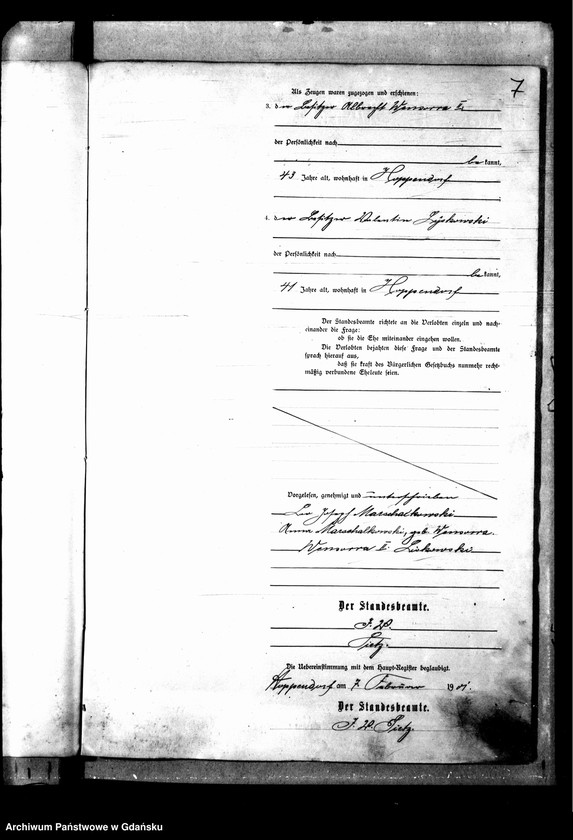 7
Als Zeugen waren zugezogen und erschienen:
3. der Besitzer Albrecht Wensorra II.
der Persönlichkeit nach
be kannt,
43 Jahre alt, wohnhaft in Hoppendorf
4. der Besitzer Valentin Lyskowski
der Persönlichkeit nach
be kannt,
41 Jahre alt, wohnhaft in Hoppendorf
Der Standesbeamte richtete an die Verlobten einzeln und nach-
einander die Frage:
ob sie die Ehe miteinander eingehen wollen.
Die Verlobten bejahten diese Frage und der Standesbeamte
sprach hierauf aus,
daß sie kraft des Bürgerlichen Gesetzbuchs nunmehr recht-
mäßig verbundene Eheleute seien.
Vorgelesen, genehmigt und unterschrieben
Leo Joseph Marschalkowski
Anna Marschalkowski, geb. Wensorra.
Wensorra II. Liskowski
Der Standesbeamte.
J. V.
Tietz.
Die Uebereinstimmung mit dem Haupt-Register beglaubigt.
Hoppendorf am 7. Februar 1901.
Der Standesbeamte.
J. V. Tietz.
Archiwum Państwowe w Gdańsku